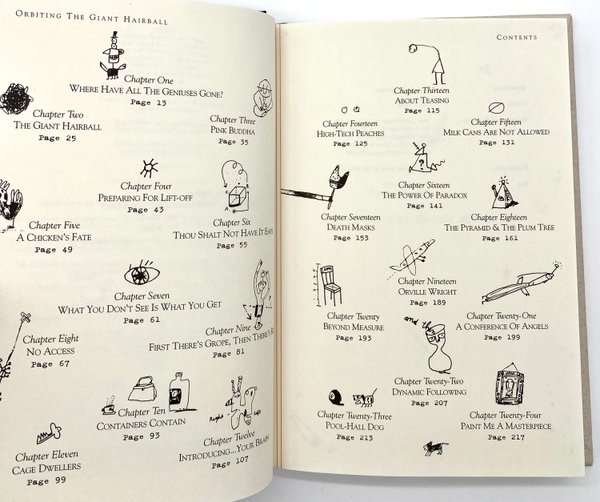 ORBITING THE GIANT HAIRBALL
Chapter One
WHERE HAVE ALL THE GENIUSES GONE?
Page 13
Chapter Two
THE GIANT HAIRBALL
Page 25
Chapter Three
PINK BUDDHA
Page 35
Chapter Four
PREPARING FOR LIFT-OFF
Page 43
Chapter Five
A CHICKEN'S FATE
Page 49
Chapter Six
THOU SHALT NOT HAVE IT
Page 55
Chapter Seven
WHAT YOU DON'T SEE IS WHAT YOU GET
Page 61
Chapter Eight
NO ACCESS
Page 67
Chapter Nine
FIRST THERE'S GROPE, THEN THERE'S
Page 81
Chapter Ten
CONTAINERS CONTAIN
Page 93
Chapter Eleven
CAGE DWELLERS
Page 99
Right
Chapter Twelve
INTRODUCING...YOUR BRAIN
Page 107
CONTENTS
Chapter Thirteen
ABOUT TEASING
Page 115
Chapter Fourteen
HIGH-TECH PEACHES
Page 125
Chapter Fifteen
MILK CANS ARE NOT ALLOWED
Page 131
?
Chapter Sixteen
THE POWER OF PARADOX
Page 141
Chapter Seventeen
DEATH MASKS
Page 153
Chapter Eighteen
THE PYRAMID & THE PLUM TREE
Page 161
Chapter Nineteen
ORVILLE WRIGHT
Page 189
Chapter Twenty
BEYOND MEASURE
Page 193
Chapter Twenty-One
A CONFERENCE OF ANGELS
Page 199
and the
Chapter Twenty-Two
DYNAMIC FOLLOWING
Page 207
Chapter Twenty-Three
POOL-HALL DOG
Page 213
Chapter Twenty-Four
PAINT ME A MASTERPIECE
Page 217